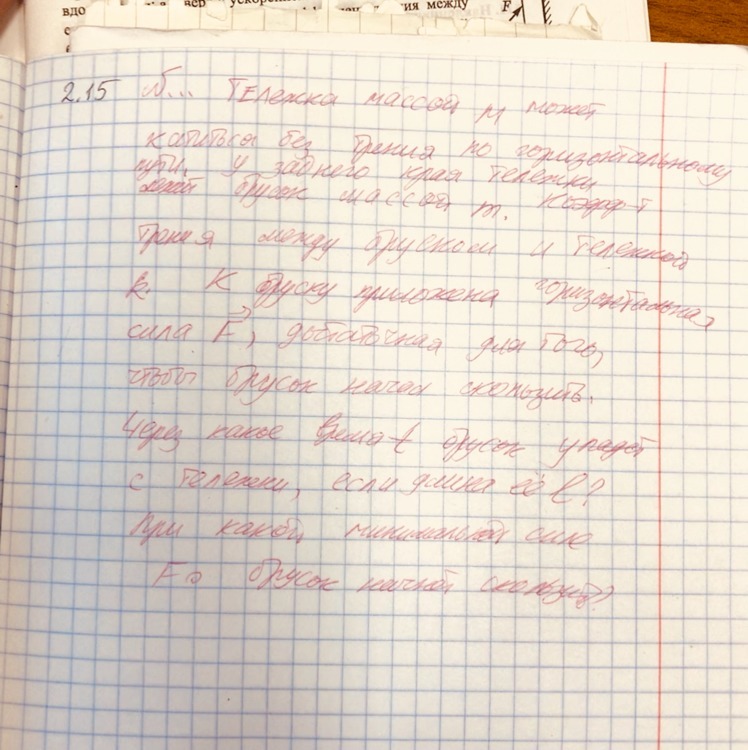 вдо вер ускорен ния между F
2.15 N... Тележка массой M может
катиться без трения по горизонтальному
пути. У заднего края тележки
лежит брусок массой m. Коэфф т
трения между бруском и тележкой
k. К бруску приложена горизонтальная
сила F, достаточная для того,
чтобы брусок начал скользить.
Через какое время t брусок упадёт
с тележки, если длина её l?
При какой минимальной силе
F0 брусок начнёт скользить?